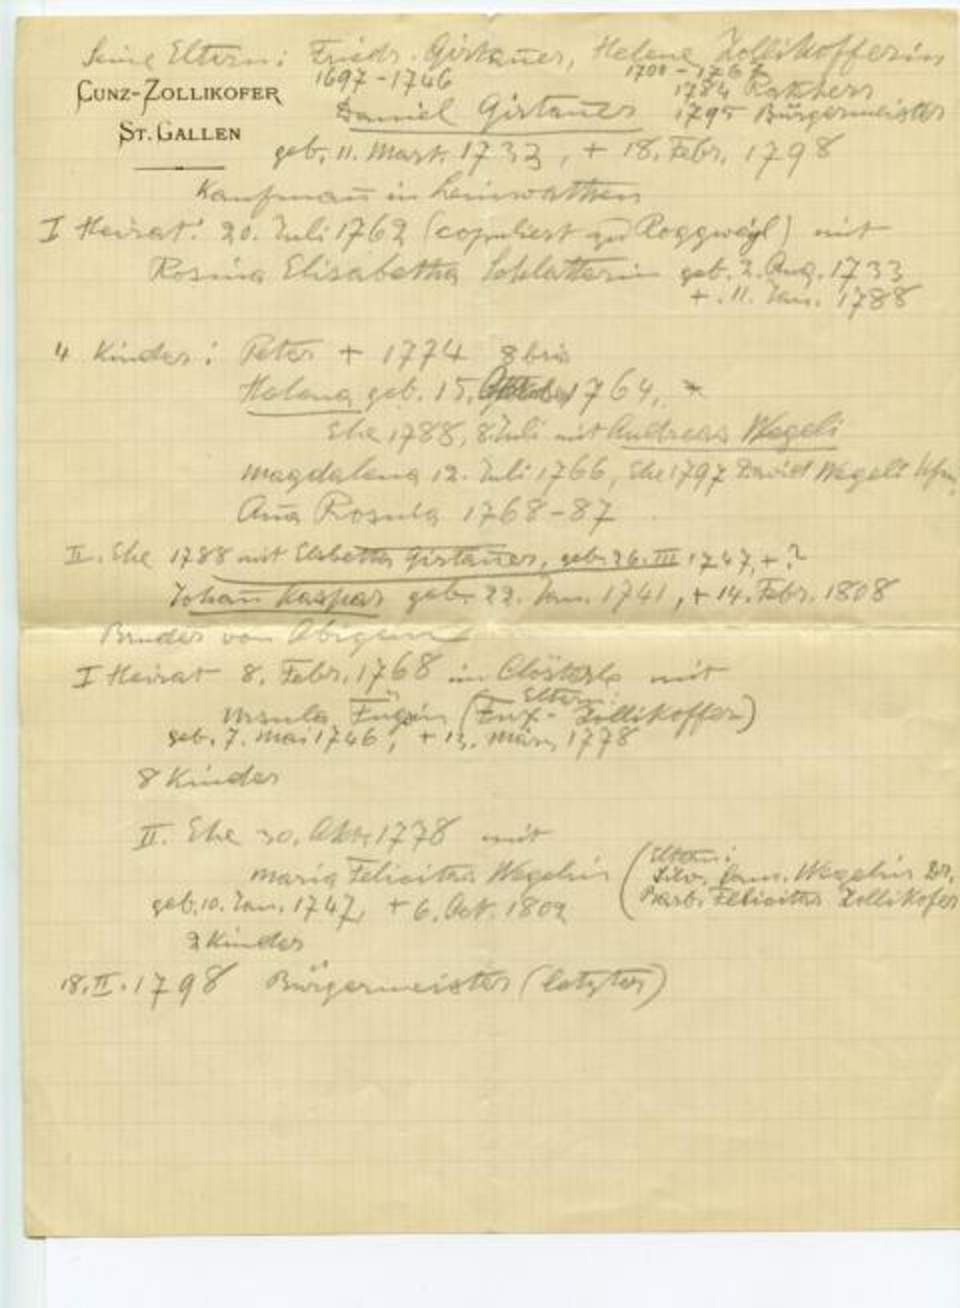 Seine Eltern: Friedr. Girtanner, Helene Zollikofferin
1697-1746 1700-1767
CUNZ-ZOLLIKOFER 1784 Rathherr
Daniel Girtanner 1795 Bürgermeister
ST. GALLEN
geb. 11. Mart. 1733, + 18. Febr. 1798
Kaufmañ in
I Heirat: 20. Juli 1762 (copuliert zu Roggwyl) mit
Rosina Elisabetha Schlatterin geb. 2. Aug. 1733
+ 11. Jan. 1788
4 Kinder: Peter + 1774 8bris
Helena geb. 15. 1764,
Ehe 1788, 8 Juli mit Andreas Wegeli
Magdalena 12. Juli 1766, Ehe 1797 David Wegeli
Aña Rosula 1768-87
II. Ehe 1788 mit Elsbetta Girtanner, geb. 26. III 1747, + ?
Johañ Kaspar geb. 22. Jan. 1741, + 14. Febr. 1808
Bruder von
I Heirat 8. Febr. 1768 in Clösterle mit
Eltern:
Ursula (- Zollikoffer)
geb. 7. Mai 1746, + 13. März 1778
8 Kinder
II. Ehe 30. Okt. 1778 mit
Maria Felicitas Wegelin (Eltern:
Silv. Sam. Wegelin Dr.
geb. 10. Jan. 1747, + 6. Oct. 1802 Barb. Felicitas Zollikofer
2 Kinder
18. II. 1798 Bürgermeister (letzter)